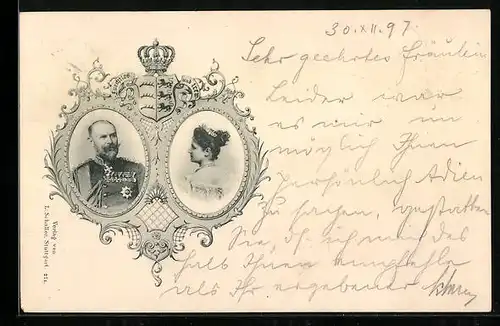 30.XII.97.
Sehr geehrtes Fräulein
Leider war
es mir un
möglich Ihnen
persönlich Adieu
zu sagen, gestatten
Sie, daß ich mich des
halb Ihnen empfehle
als Ihr ergebener
Verlag von
L. Schaller, Stuttgart.